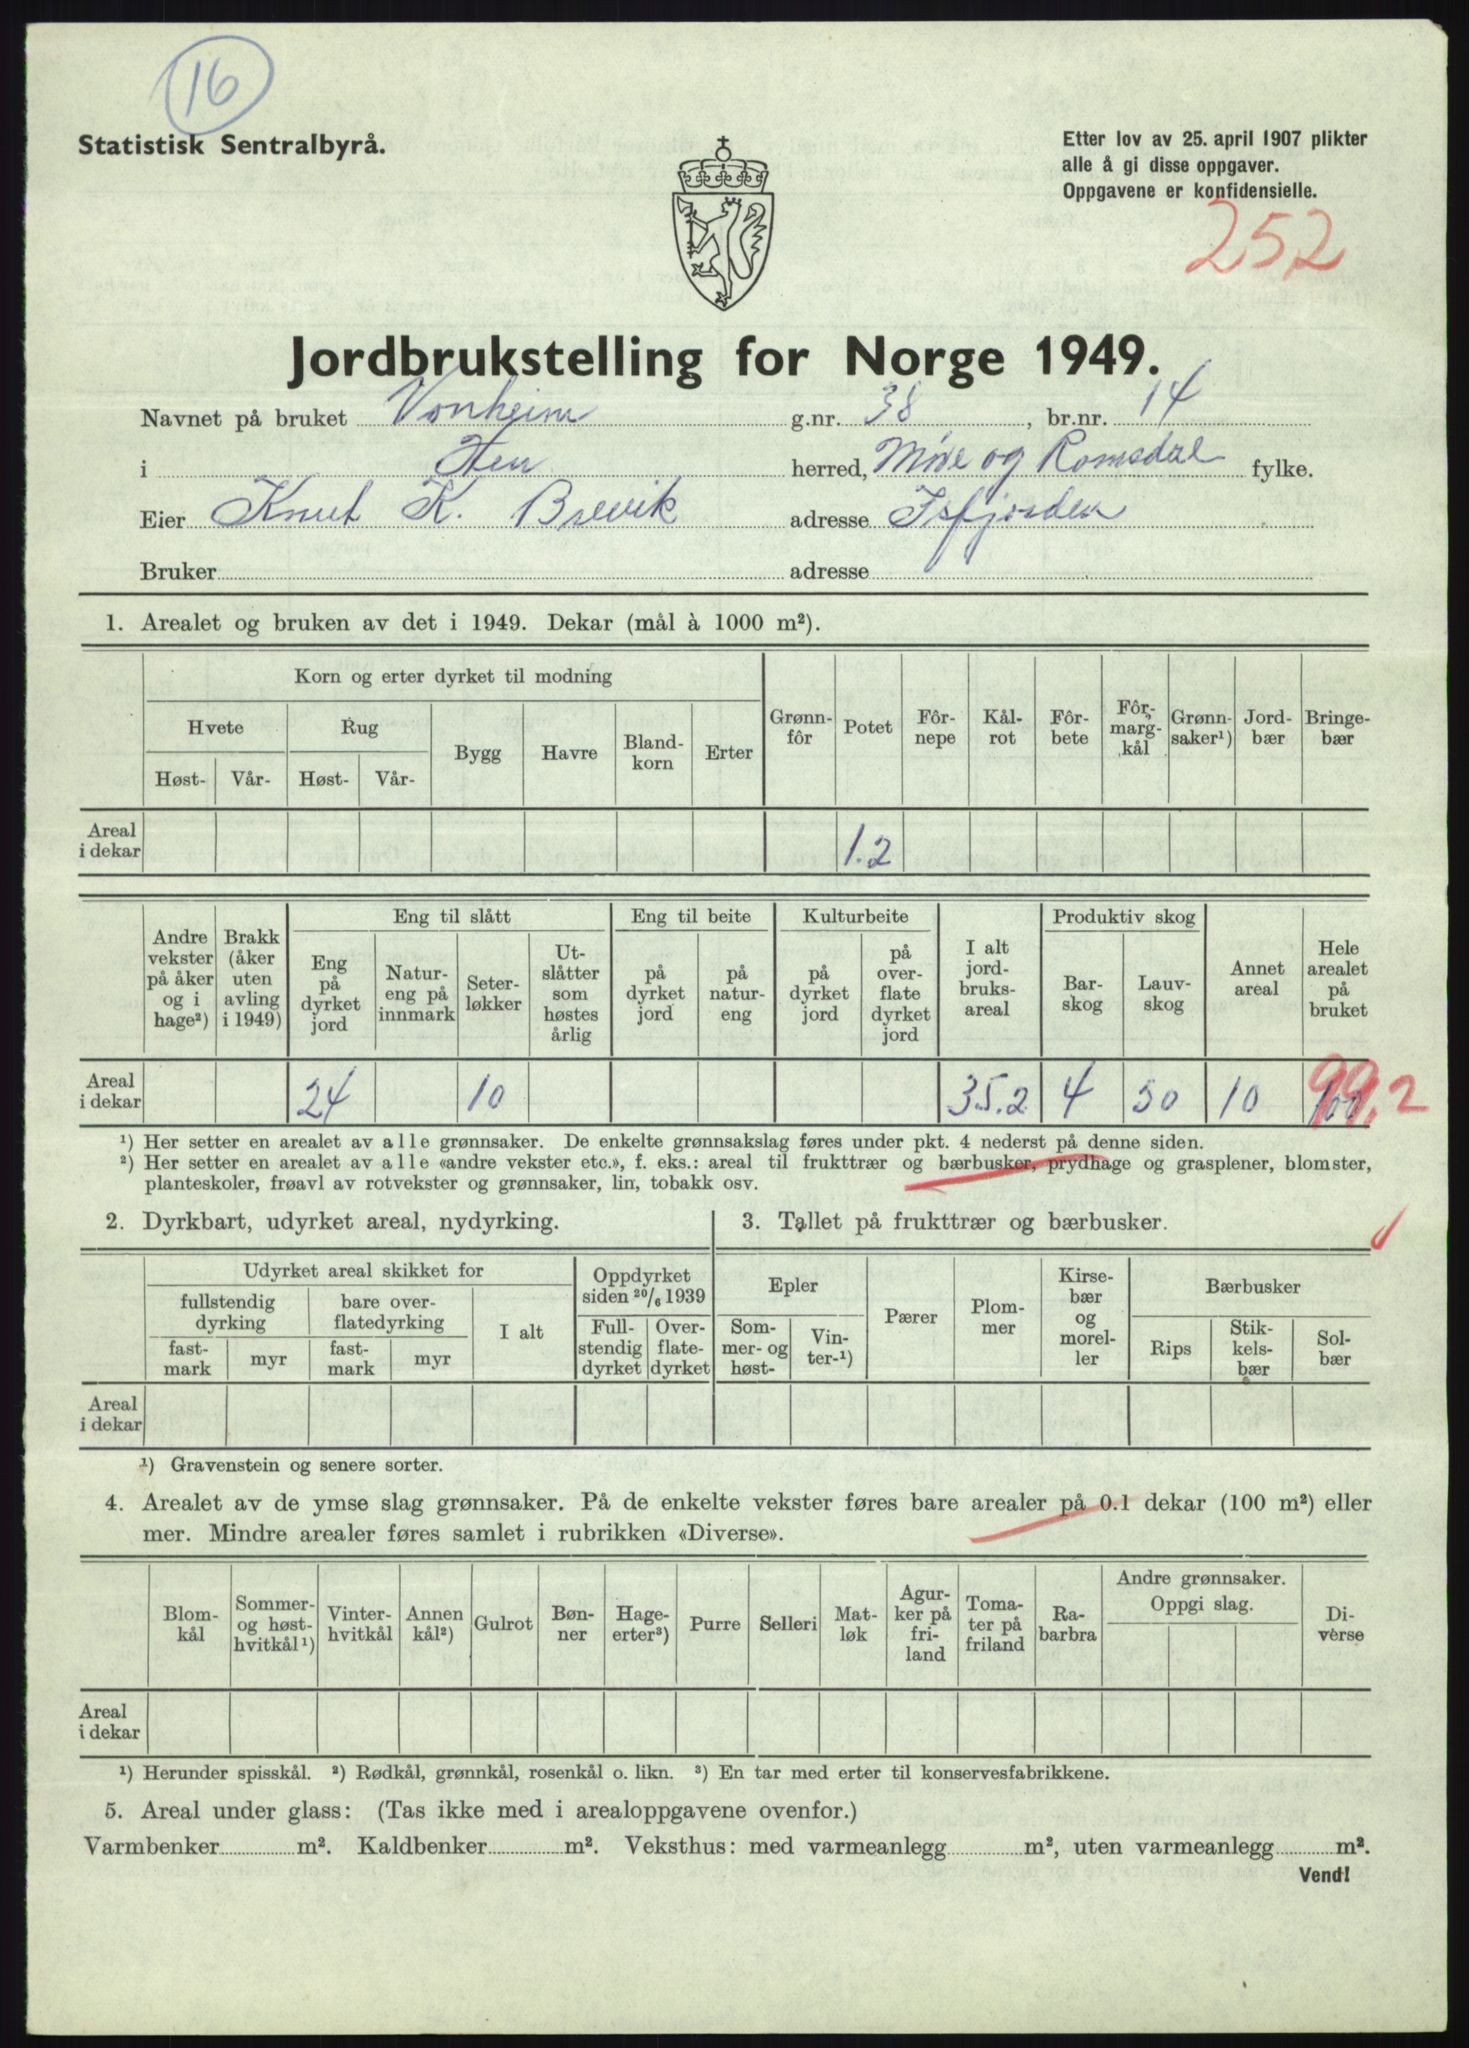 16
Statistisk Sentralbyrå.
Etter lov av 25. april 1907 plikter
alle å gi disse oppgaver.
Oppgavene er konfidensielle.
252
Jordbrukstelling for Norge 1949.
Navnet på bruket Vonheim g.nr. 38, br.nr. 14
i Hen herred, Møre og Romsdal fylke.
Eier Knut K. Brevik adresse Isfjorden
Bruker adresse
1. Arealet og bruken av det i 1949. Dekar (mål à 1000 m²).
Korn og erter dyrket til modning
Hvete Rug Bygg Havre Bland-korn Erter Grønn-fôr Potet Fôr-nepe Kål-rot Fôr-bete Fôr-marg-kål Grønn-saker¹) Jord-bær Bringe-bær
Høst- Vår- Høst- Vår-
Areal i dekar 1.2
Andre vekster på åker og i hage²) Brakk (åker uten avling i 1949) Eng til slått Eng til beite Kulturbeite I alt jord-bruks-areal Produktiv skog Annet areal Hele arealet på bruket
Eng på dyrket jord Natur-eng på innmark Seter-løkker Ut-slåtter som høstes årlig på dyrket jord på natur-eng på dyrket jord på over-flate dyrket jord Bar-skog Lauv-skog
Areal i dekar 24 10 35.2 4 50 10 100 99,2
¹) Her setter en arealet av alle grønnsaker. De enkelte grønnsakslag føres under pkt. 4 nederst på denne siden.
²) Her setter en arealet av alle «andre vekster etc.», f. eks.: areal til frukttrær og bærbusker, prydhage og grasplener, blomster,
planteskoler, frøavl av rotvekster og grønnsaker, lin, tobakk osv.
2. Dyrkbart, udyrket areal, nydyrking.
Udyrket areal skikket for Oppdyrket siden ²⁰/₆ 1939
fullstendig dyrking bare over-flatedyrking I alt Full-stendig dyrket Over-flate-dyrket
fast-mark myr fast-mark myr
Areal i dekar
3. Tallet på frukttrær og bærbusker.
Epler Pærer Plom-mer Kirse-bær og morel-ler Bærbusker
Som-mer- og høst- Vin-ter-¹) Rips Stik-kels-bær Sol-bær
¹) Gravenstein og senere sorter.
4. Arealet av de ymse slag grønnsaker. På de enkelte vekster føres bare arealer på 0.1 dekar (100 m²) eller
mer. Mindre arealer føres samlet i rubrikken «Diverse».
Blom-kål Sommer- og høst-hvitkål¹) Vinter-hvitkål Annen kål²) Gulrot Bøn-ner Hage-erter³) Purre Selleri Mat-løk Agur-ker på fri-land Toma-ter på friland Ra-barbra Andre grønnsaker. Oppgi slag. Di-verse
Areal i dekar
¹) Herunder spisskål. ²) Rødkål, grønnkål, rosenkål o. likn. ³) En tar med erter til konservesfabrikkene.
5. Areal under glass: (Tas ikke med i arealoppgavene ovenfor.)
Varmbenker m². Kaldbenker m². Veksthus: med varmeanlegg m², uten varmeanlegg m².
Vend!